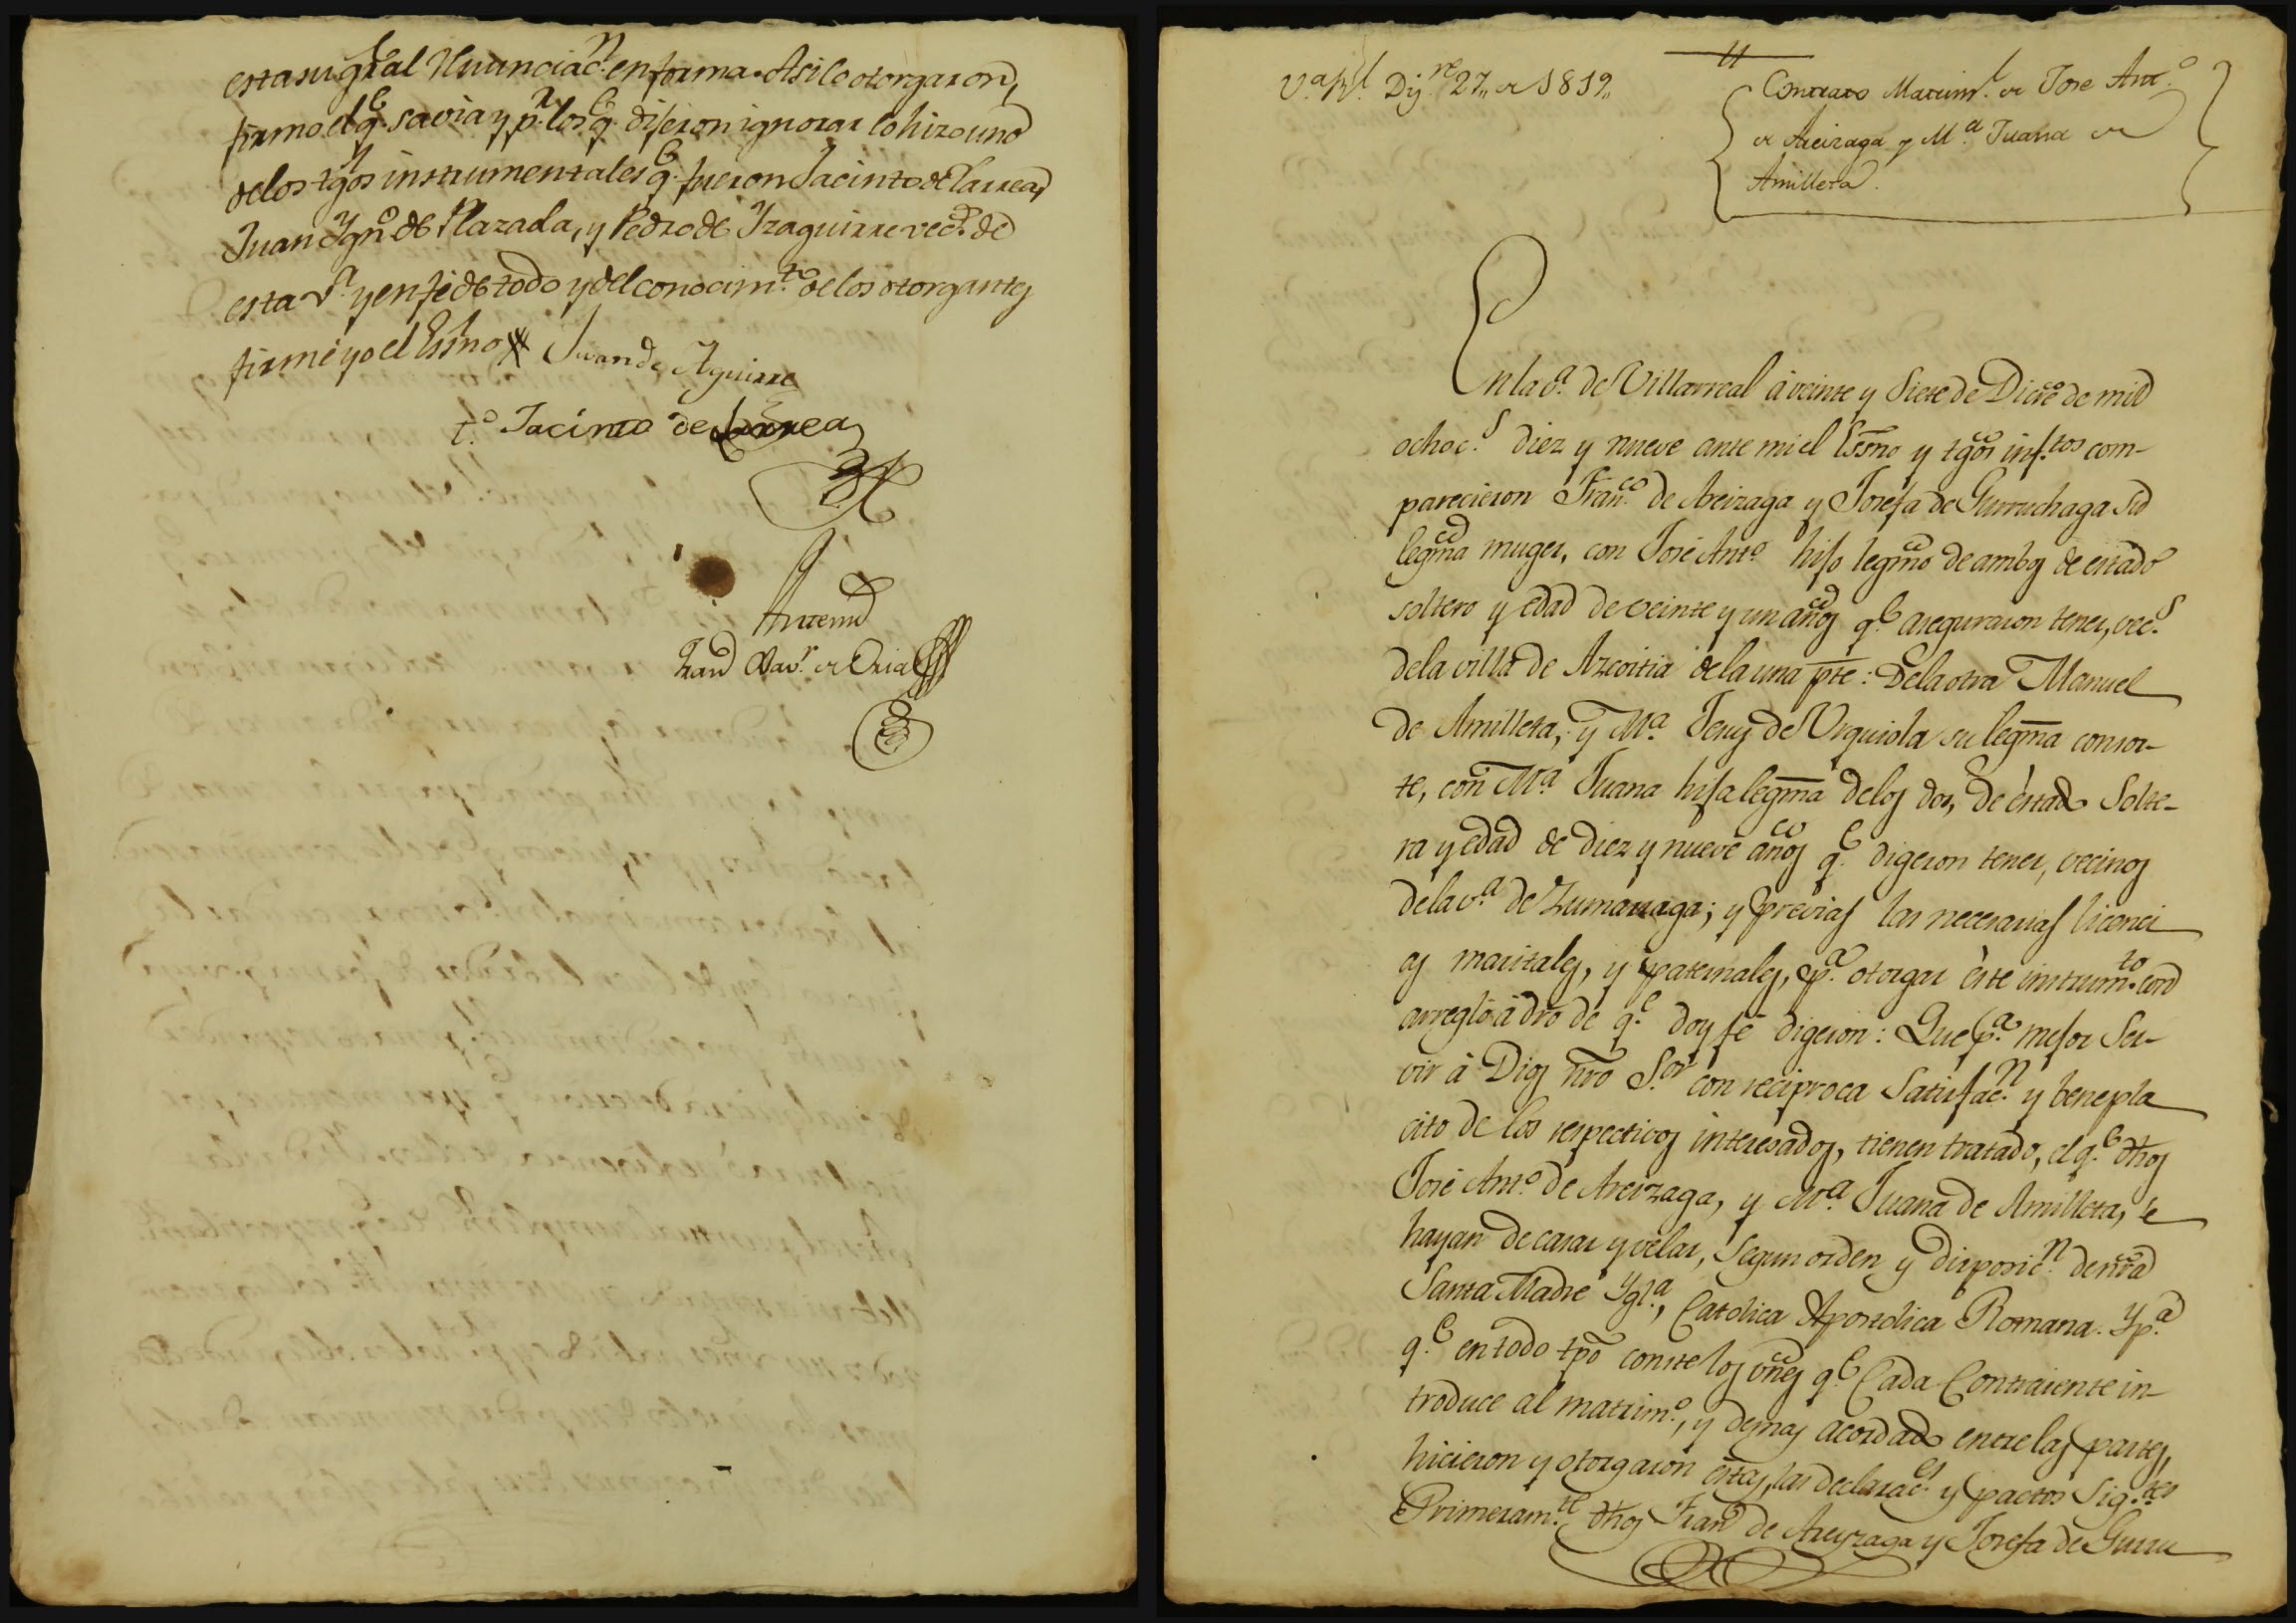 esta su gral Renunciac.n en forma. Asi lo otorgaron,
firmo el q.e savia y p.r los q.e dijeron ignorar lo hizo uno
de los tgos instrumentales q.e fueron Jacinto de Larrea,
Juan Ygn.o de Plazada, y Pedro de Yzaguirre vec.s de
esta V.a y en fe de todo y del conocim.to de los otorgantes
firmé yo el Essno Juan de Aguirre
t.o Jacinto de Larrea
Antemi
V.a R.l Dij.re 27,, de 1819,,
Contrato Matrim.l de Jose Ant.o
de Areizaga y M.a Juana de
Amilleta.
En la v.a de Villarreal á veinte y Siete de Dicre de mil
ochoc.s diez y nueve ante mi el Essno y tgos inf.tos com-
parecieron Fran.co de Areizaga y Josefa de Gurruchaga su
legma muger, con José Ant.o hijo legmo de ambos de estado
soltero y edad de veinte y un años q.e aseguraron tener, vec.s
de la villa de Azcoitia de la una pte: De la otra Manuel
de Amilleta, y M.a Jesus de Urquiola su legma consor-
te, con M.a Juana hija legma de los dos, de estado Solte-
ra y edad de diez y nueve años q.e digeron tener, vecinos
de la v.a de Zumarraga; y previas las necesarias licenci
as maritales, y paternales, p.a otorgar éste instrum.to con
arreglo á dro de q.e doy fé digeron: Que p.a mejor Ser-
vir á Dios nro S.or con reciproca Satisfac.n y benepla
cito de los respectivos interesados, tienen tratado, el q.e dhos
José Ant.o de Areizaga, y M.a Juana de Amilleta, se
hayan de casar y velar, Segun orden y disposic.n de nra
Santa Madre Ygl.a, Catolica Apostolica Romana. Y p.a
q.e en todo tpo conste los vnes q.e Cada Contraiente in-
troduce al matrim.o, y demas acordado entre las partes,
hicieron y otorgaron éstas, las declarac.es y pactos Sig.tes
Primeram.te dhos Fran.co de Areyzaga y Josefa de Gurru